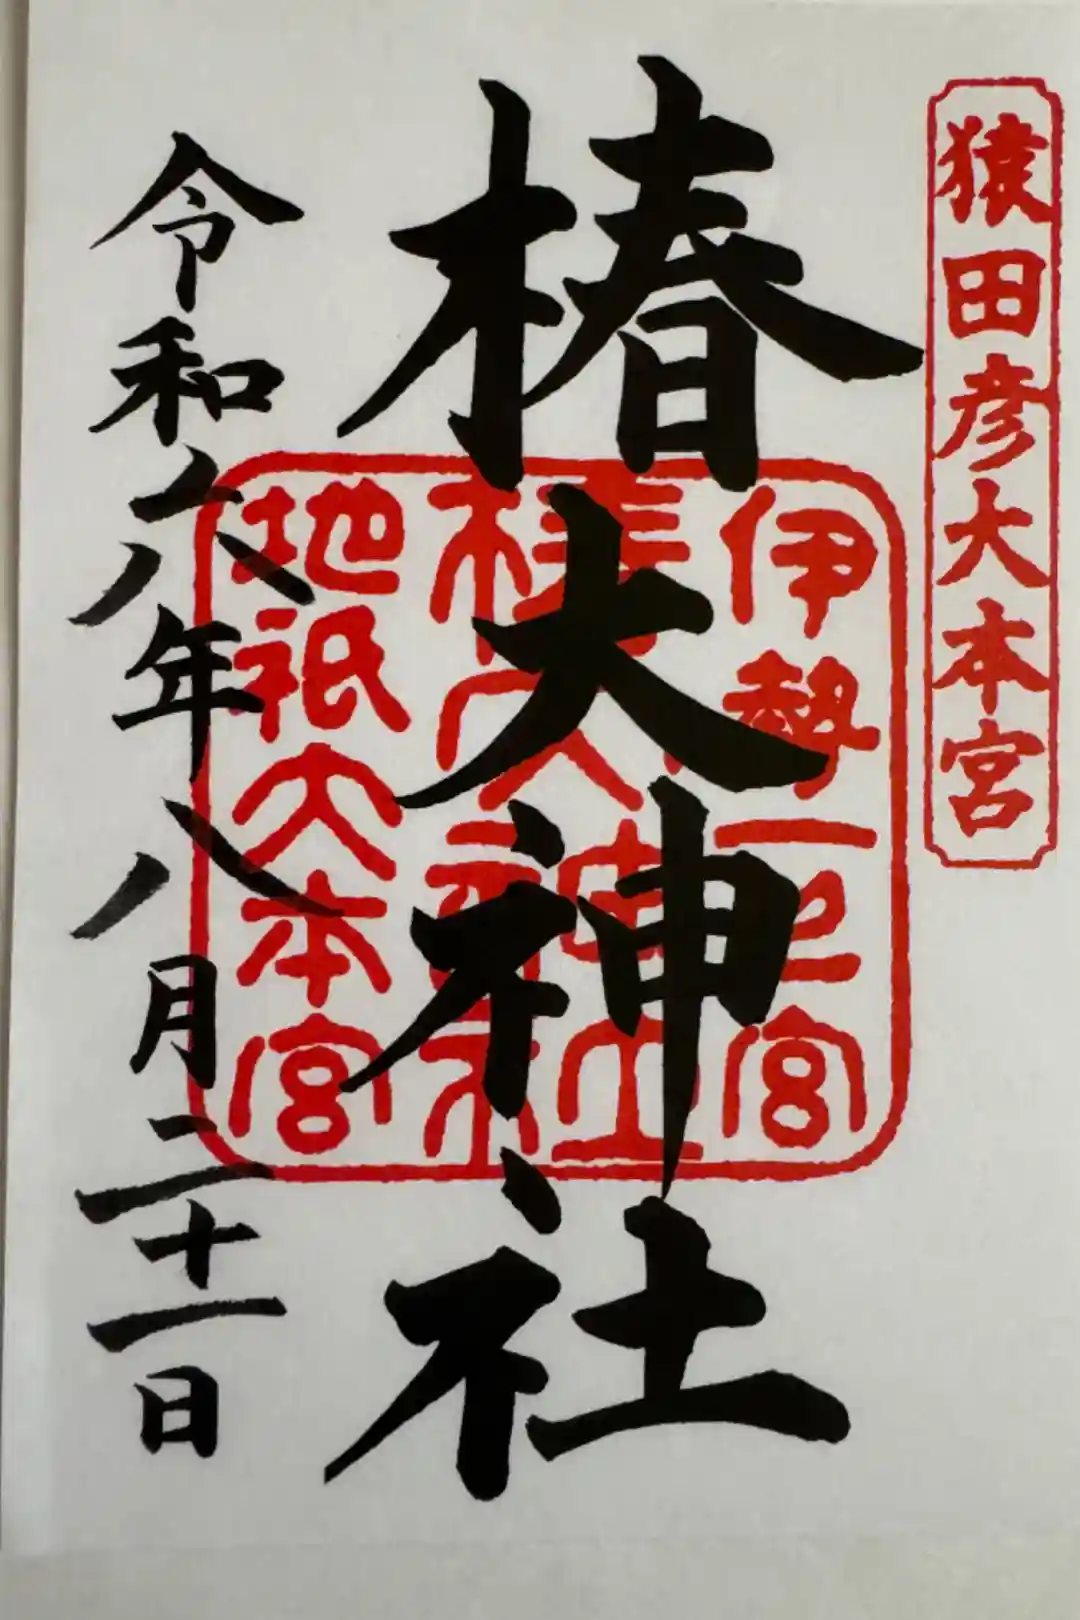 猿田彦大本宮
椿大神社
伊勢一之宮
椿大神社
地祇大本宮
令和六年八月二十一日